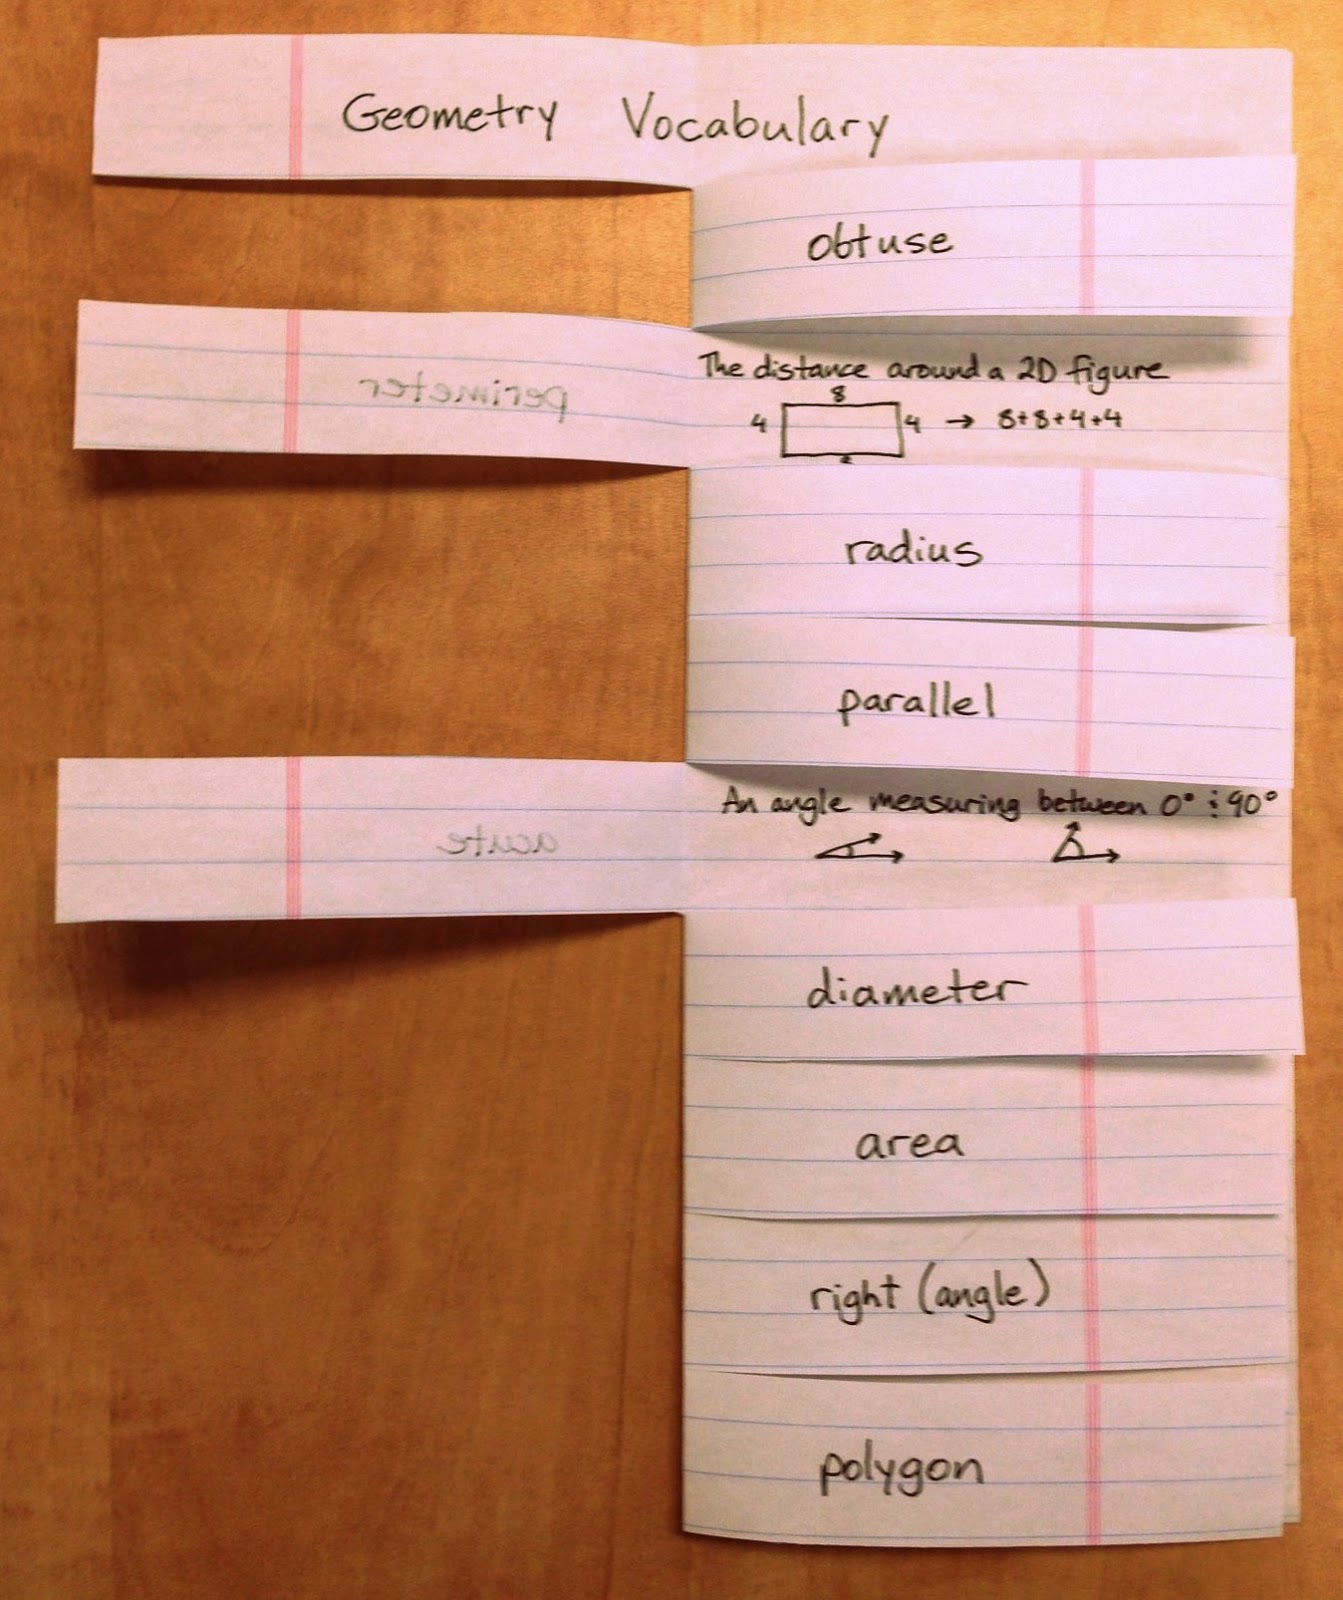 Geometry Vocabulary
obtuse
perimeter
The distance around a 2D figure
8
4 4 → 8+8+4+4
radius
parallel
An angle measuring between 0° & 90°
acute
diameter
area
right (angle)
polygon